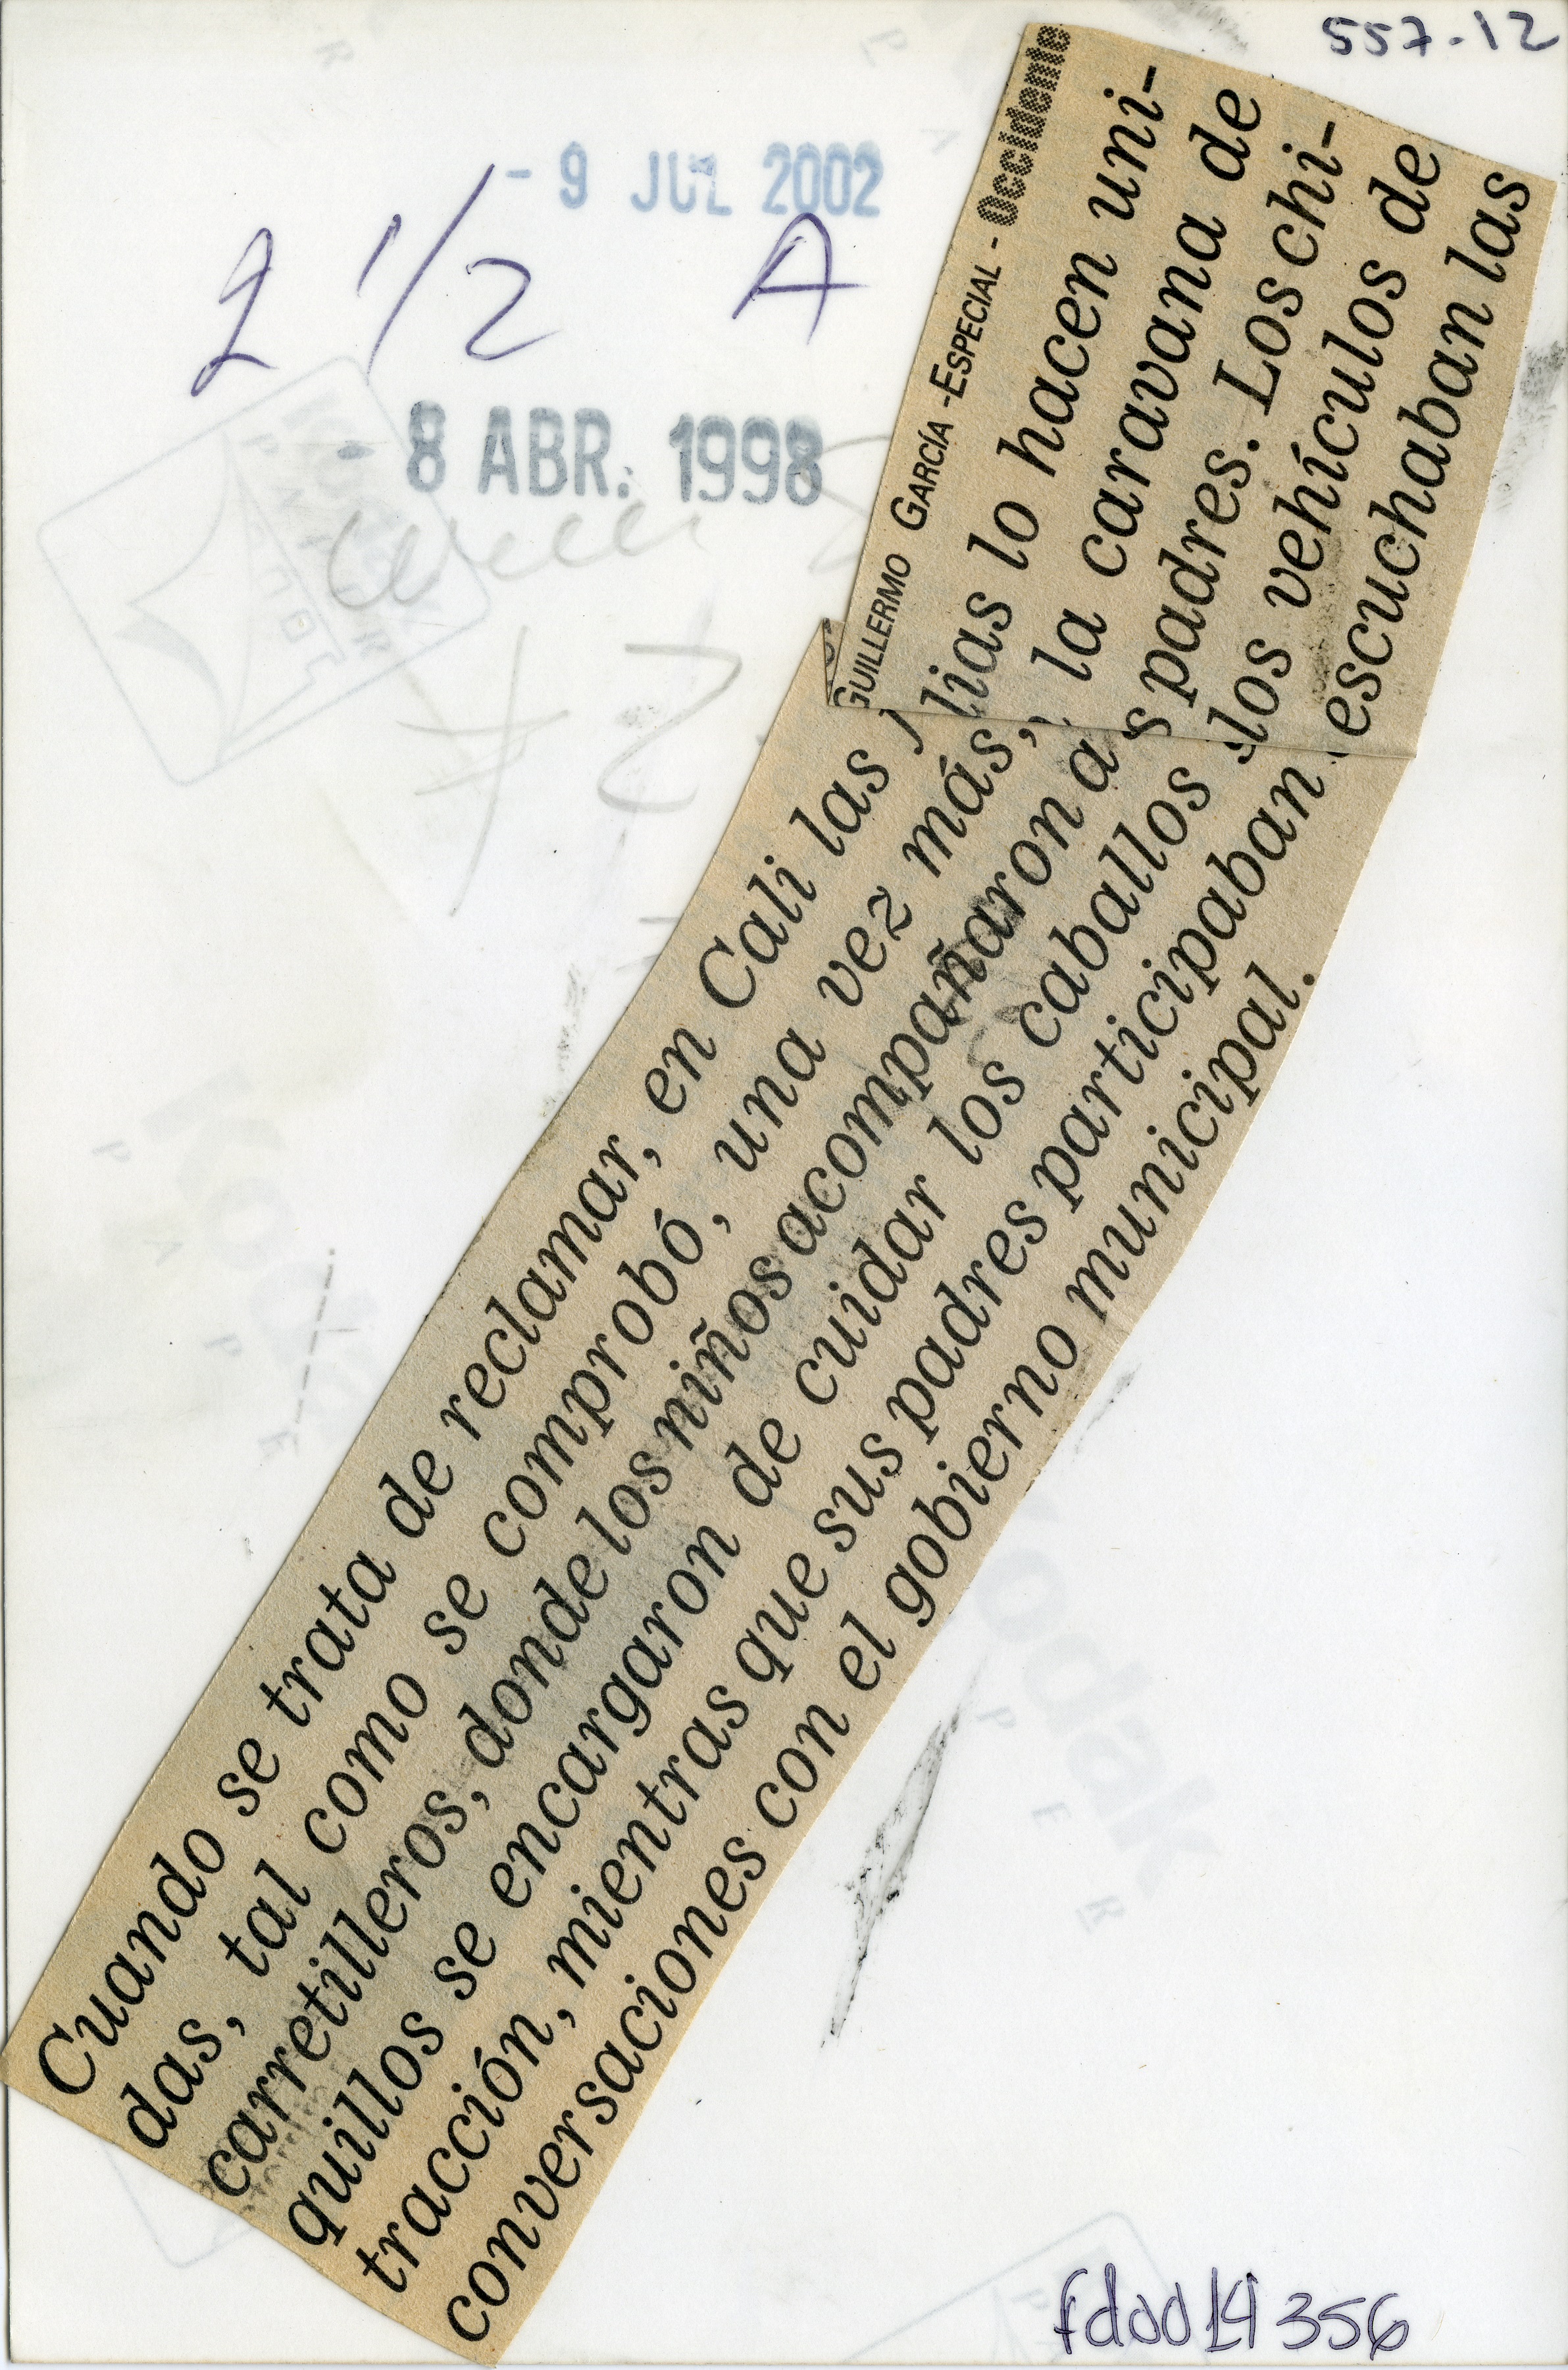 557-12
- 9 JUL 2002
2 1/2 A
- 8 ABR. 1998
GUILLERMO GARCÍA -ESPECIAL - Occidente
Cuando se trata de reclamar, en Cali las lias lo hacen uni-
das, tal como se comprobó, una vez más, la caravana de
carretilleros, donde los niños acompañaron a s padres. Los chi-
quillos se encargaron de cuidar los caballos los vehículos de
tracción, mientras que sus padres participaban escuchaban las
conversaciones con el gobierno municipal.
fd0014356